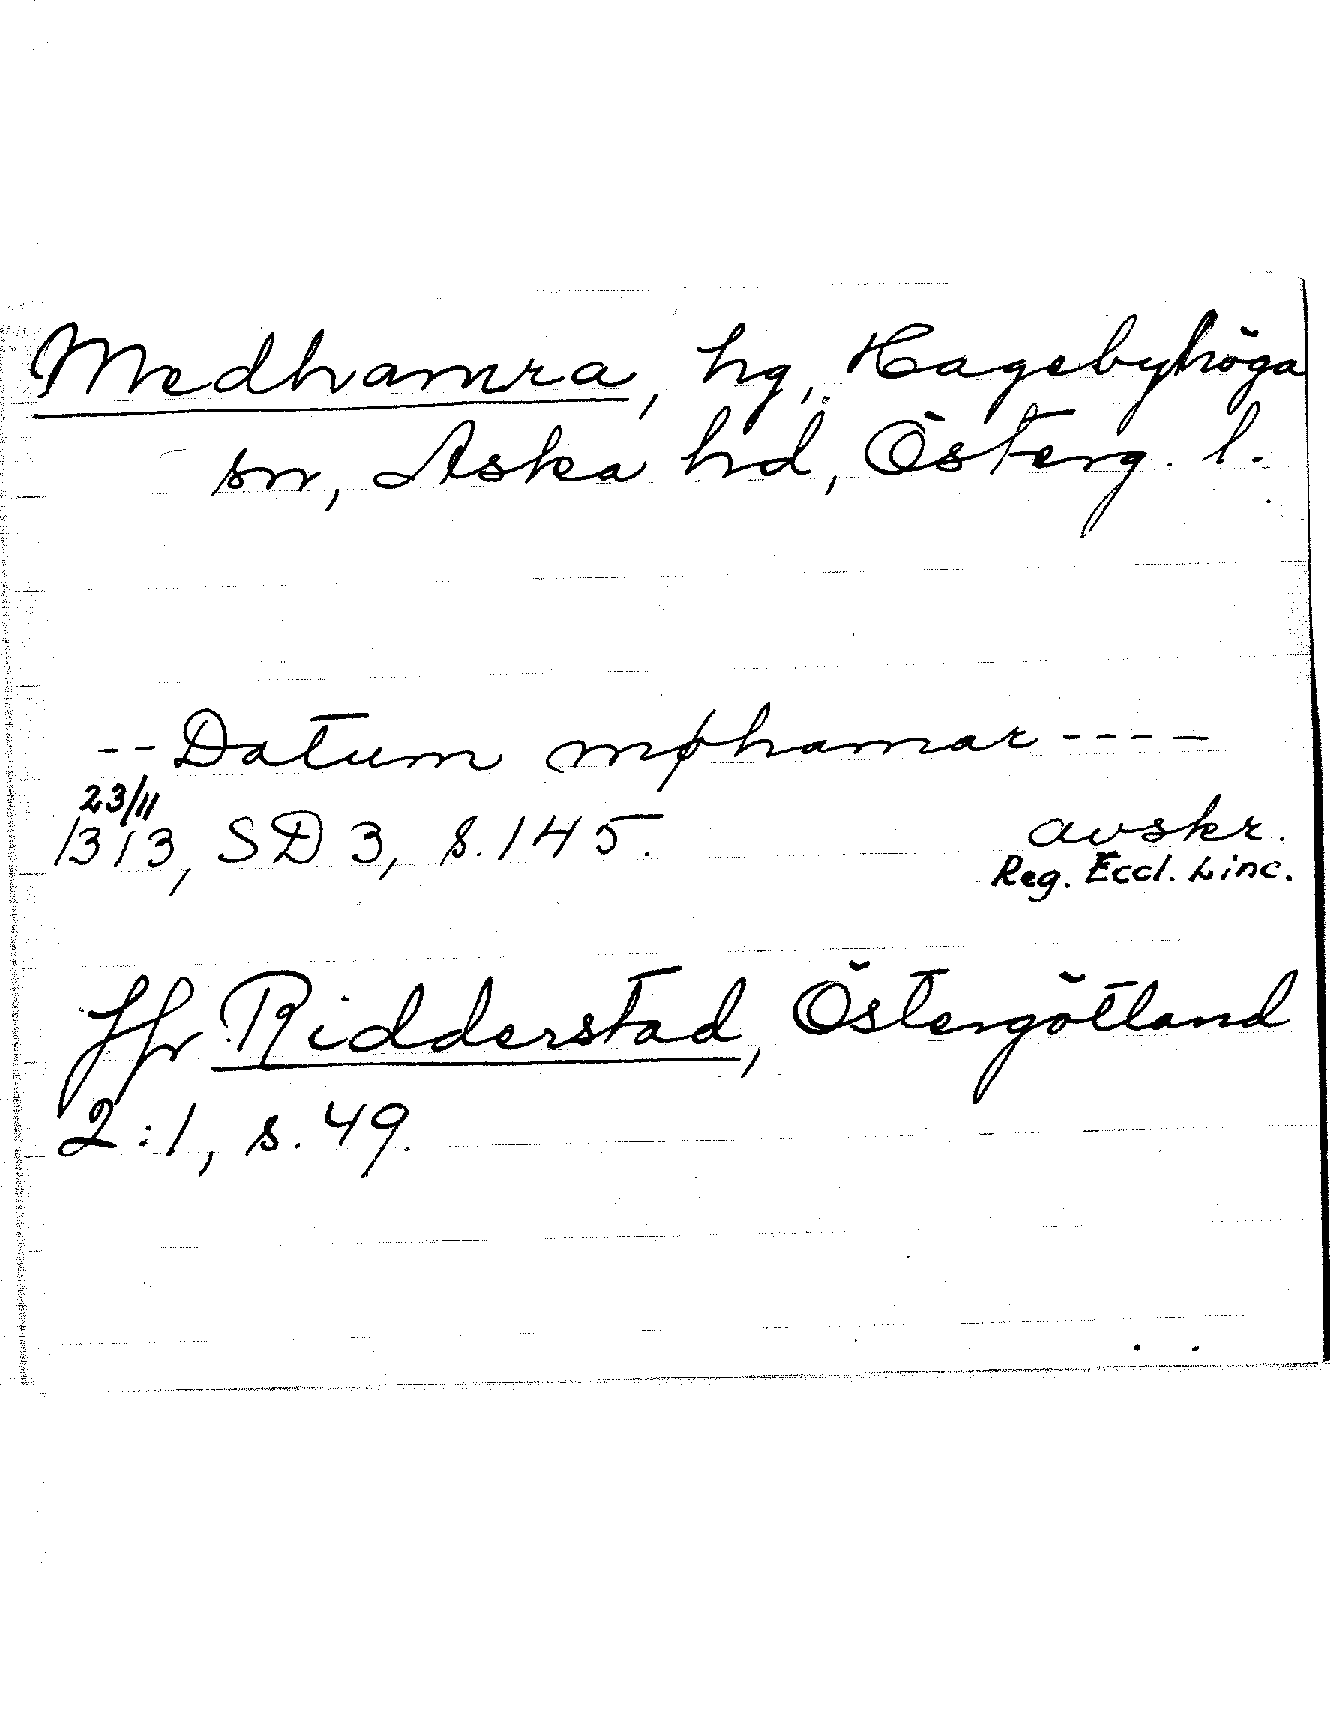 Medhamra, hg, Hagebyhöga
sn, Aska hd, Österg. l.
-- Datum mϕhamar ----
23/11
1313, SD 3, s. 145. avskr.
Reg. Eccl. Linc.
Jfr Ridderstad, Östergötland
2:1, s. 49.